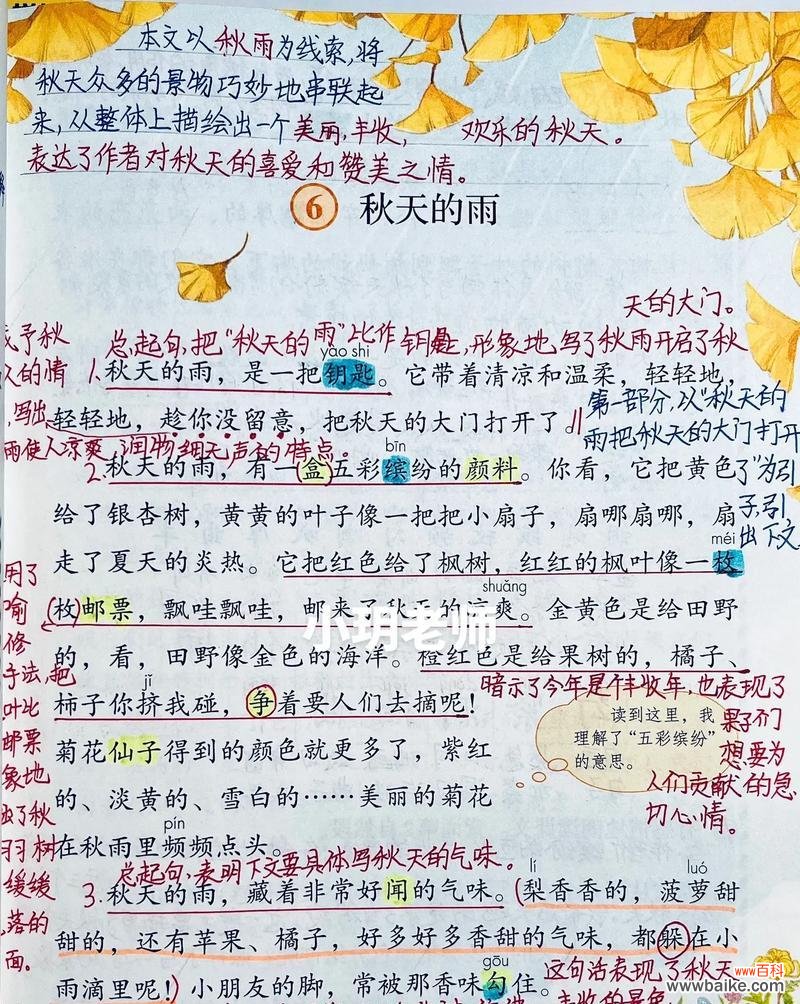 本文以秋雨为线索,将
秋天众多的景物巧妙地串联起
来,从整体上描绘出一个美丽,丰收, 欢乐的秋天。
表达了作者对秋天的喜爱和赞美之情。
6 秋天的雨
天的大门。
予秋 总起句,把"秋天的雨"比作钥匙,形象地写了秋雨开启了秋
人的情
yào shi
1.秋天的雨,是一把钥匙。它带着清凉和温柔,轻轻地,
写出
轻轻地,趁你没留意,把秋天的大门打开了
第一部分,以"秋天的
雨使人凉爽,润物细无声的特点。
雨把秋天的大门打开
bīn
2.秋天的雨,有一盒五彩缤纷的颜料。你看,它把黄色
了"为引
给了银杏树,黄黄的叶子像一把把小扇子,扇哪扇哪,扇
子,引
出下文
méi
走了夏天的炎热。它把红色给了枫树,红红的枫叶像一枚
用了
喻
修
手法,把
叶比
邮票
象地
了秋
树
缓缓
落的
面。
shuāng
(枚)邮票,飘哇飘哇,邮来了秋天的凉爽。金黄色是给田野
小玥老师
的,看,田野像金色的海洋。橙红色是给果树的,橘子、
jǐ
柿子你挤我碰,争着要人们去摘呢!
暗示了今年是个丰收年,也表现了
果子们
想要为
人们贡献的急
切心情。
读到这里,我
理解了"五彩缤纷"
的意思。
菊花仙子得到的颜色就更多了,紫红
的、淡黄的、雪白的……美丽的菊花
pín
在秋雨里频频点头。
总起句、表明下文要具体写秋天的气味。
lí luó
3.秋天的雨,藏着非常好闻的气味。(梨香香的,菠萝甜
甜的,还有苹果、橘子,好多好多香甜的气味,都躲在小
gōu
雨滴里呢!)小朋友的脚,常被那香味勾住。
这句话表现了秋天
www·百科
www.wwbaike.com